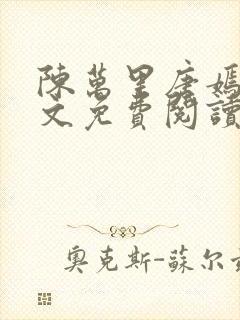 陳萬里唐嫣
文免費閱讀
奧克斯-蘇尔